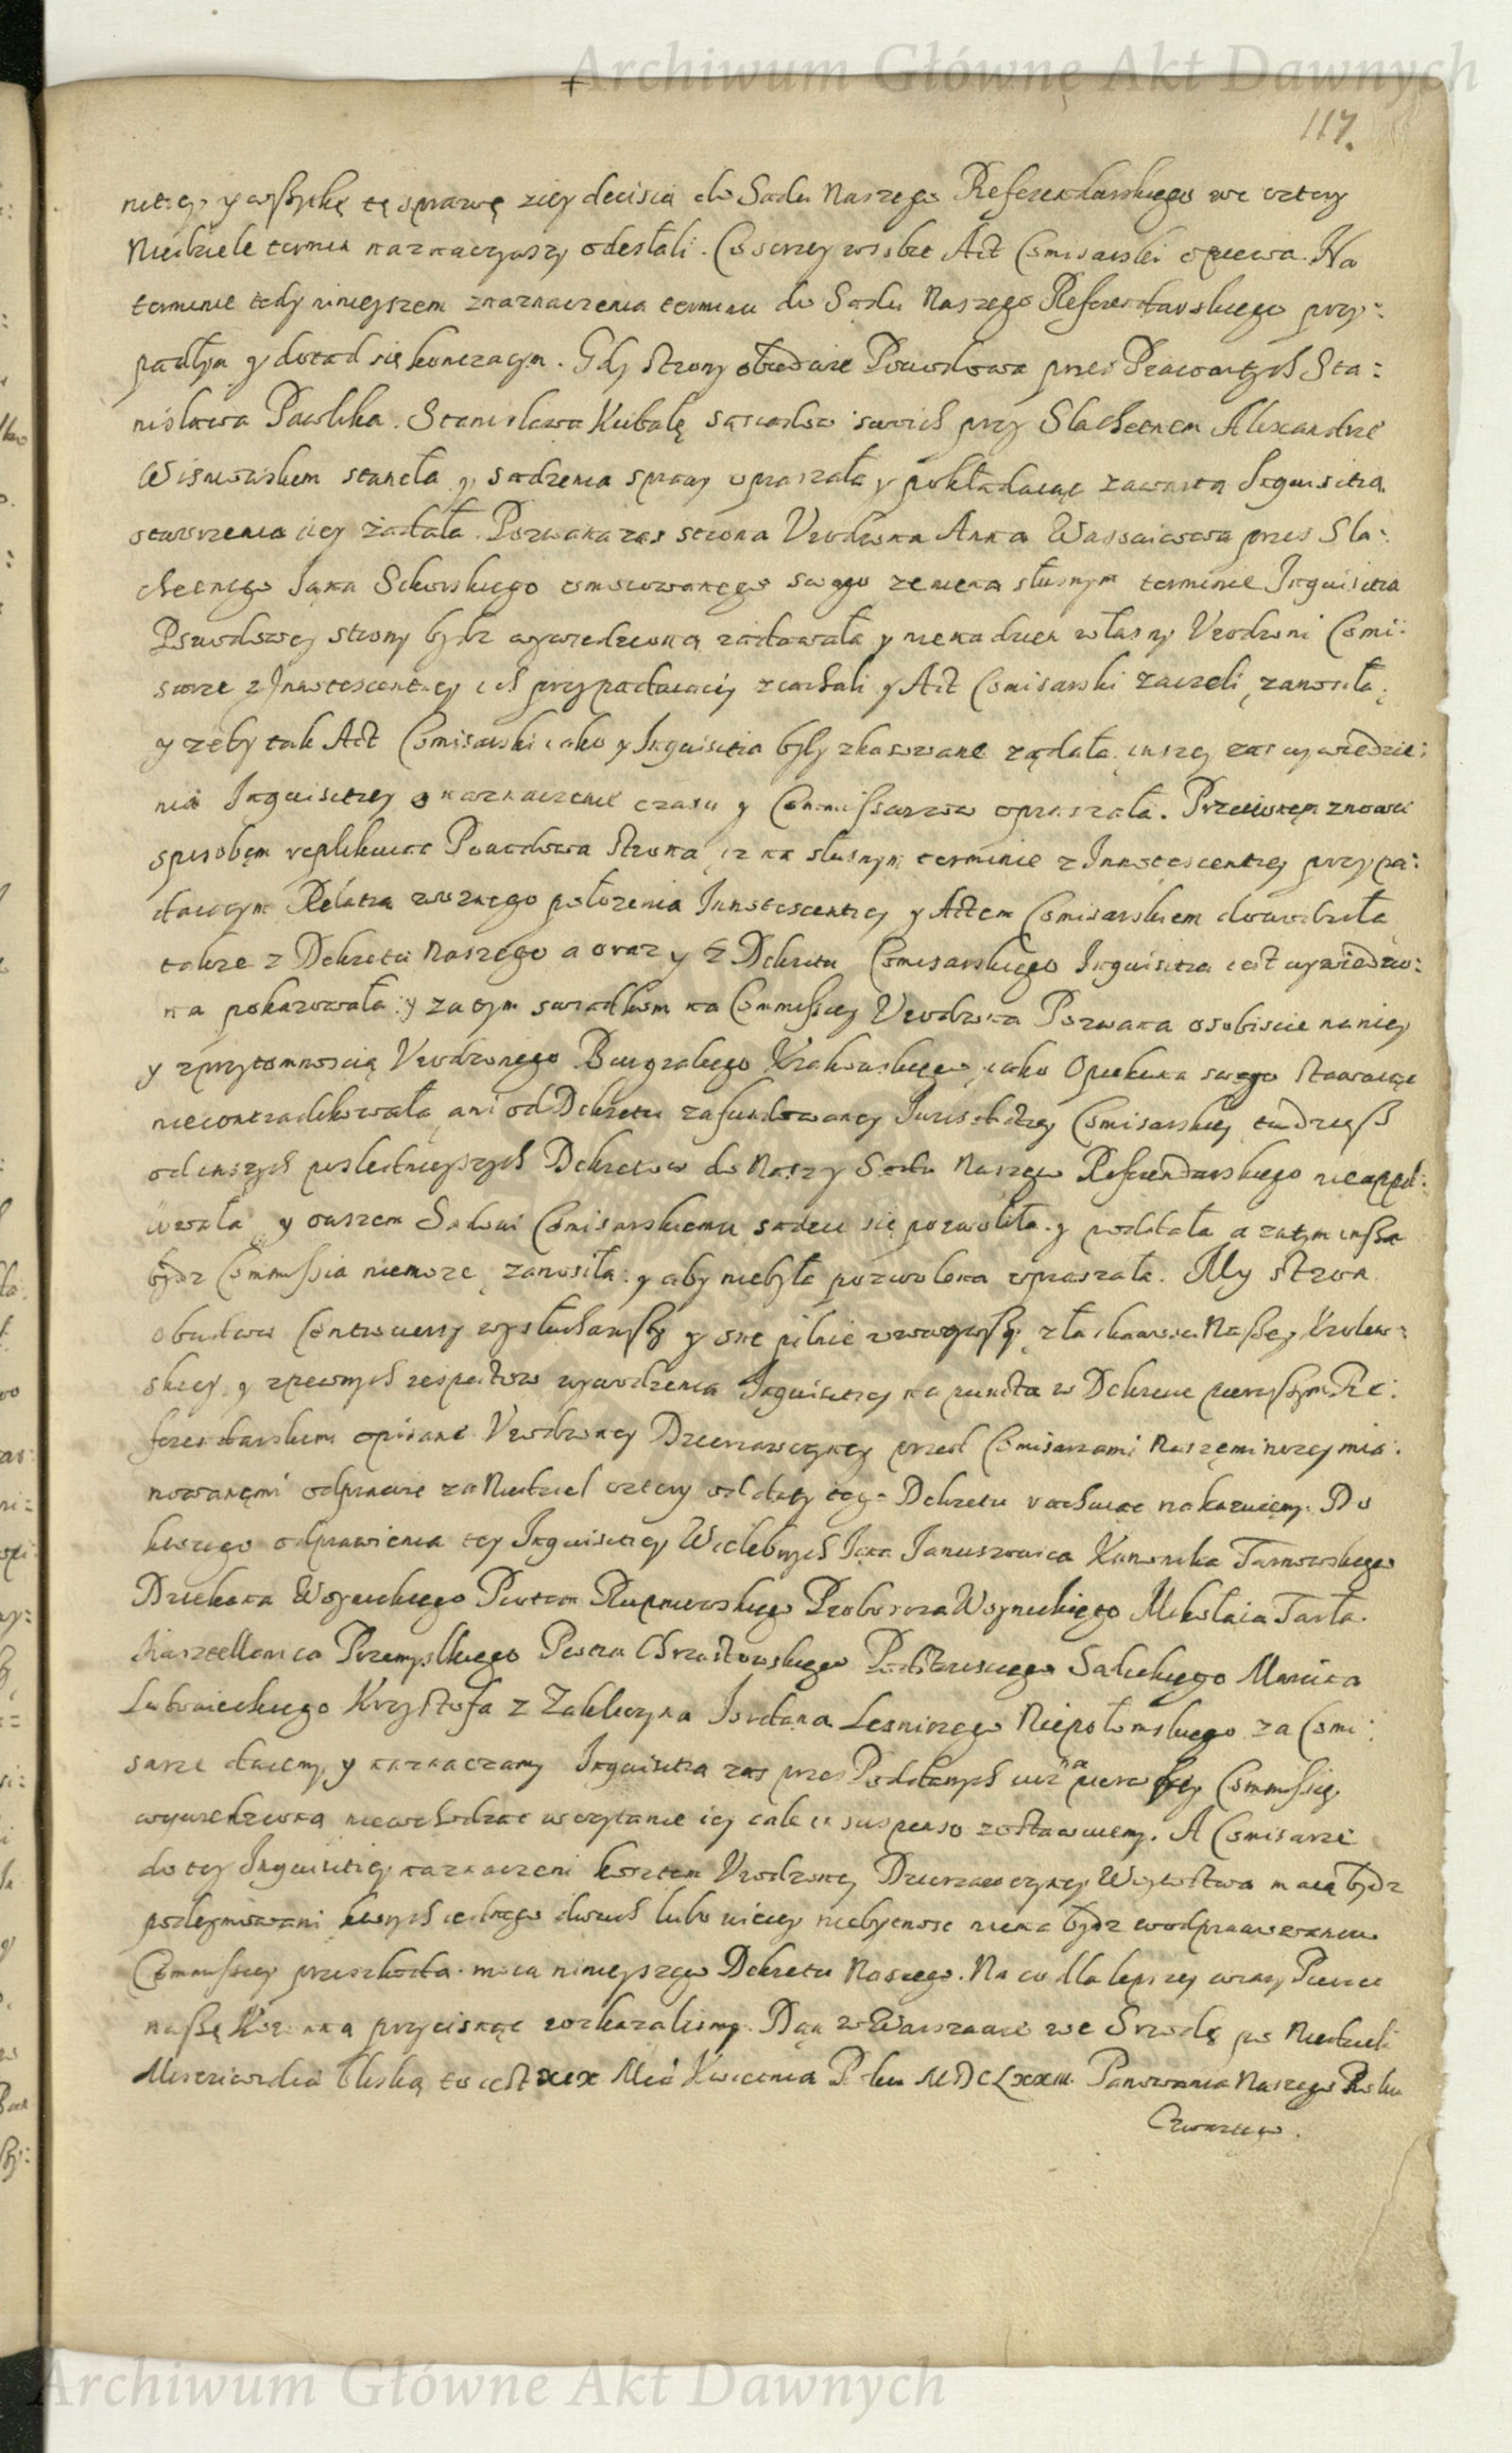 Archiwum Główne Akt Dawnych
117.
y wszytkę tę sprawę z iey decisią do Sądu Naszego Referendarskiego we cztery
Niedziele termin naznaczywszy odesłali. Co szerzey w sobie Act Comisarski opiewa. Na
terminie tedy ninieyszem z naznaczenia terminu do Sądu Naszego Referendarskiego przy:
padłym y dotąd się konczącym. Gdy Strony obiedwie Powodowa przez Pracowitych Sta:
nisława Pawlika. Stanisława Kubalę sąsiadow swoich przy Slachetnem Alexandrze
Wisniowskem stanęła y sądzenia sprawy upraszała y pokładaiąc zawartą Inquisitią
otworzenia iiey żądała. Pozwana zas strona Urodzona Anna przez Sla:
chetnego Jana Sikorskiego umocowanego swego ze nie na słusnym terminie Inquisitia
Powodowey strony bydz wywiedziona zadawała y nie na dzien własny Urodzeni Comi:
sarze z Innotescentiey ich przypadaiący ziachali y Act Comisarski zaczęli, zanosiła,
y zeby tak Act Comisarski iako y Inquisitia były skassowane ządała, inszey zas wywiedzie:
nia Inquisitiey o naznaczenie czasu y Commissarzow upraszała. Przeciwnem znowu
sposobem replikuiąc Powodowa Strona, iz na słusnym terminie z Innotescentiey przypa:
daiącym Relatią woznego położenia Innotescentiey y Actem Comisarskiem dowodziła
także z Dekretu Naszego a oraz y z Dekretu Comisarskiego Inquisitia iest wywiedzio:
na pokazowała: y za tym swiadkom na Commissiey Urodzona Pozwana osobiscie na niey
y z przytomnoscią Urodzonego Burgrabiego Krakowskiego, iako Opiekuna swego stawaiąc
niecontradikowała, ani od Dekretu zafundowaney Jurisdictiey Comisarskiey, tudziesz
od inszych poslednieyszych Dekretow do Naszy Sądu Naszego Referendarskiego nieappel:
lowała, y owszem Sądowi Comisarskiemu sądzic się pozwoliła y poddała a zatym insza
bydz Commissia niemoze, zanosiła: y aby niebyła pozwolona upraszała. My Stron
obudwu Controuersy wysłuchawszy y one pilnie uwazywszy, z łaskawosci Naszey Krolew:
skiey, y z pewnych respectow wywodzenia Inquisitiey na puncta w Dekrecie pierwszym Re:
ferendarskiem opisane Urodzoney Dzierzawczyney przed Comisarzami Naszemi nizey mia:
nowanemi odprawic za Niedziel cztery od daty tego Dekretu rachuiąc nakazuiemy. Do
ktorego odprawienia tey Inquisitiey Wielebnych Jana Januszowica Kanonika Tarnowskiego
Dziekana Woynickiego Piotra Proboszcza Woynickiego Mikołaia Tarła.
Kasztellanica Przemyslkiego Piotra Chrząstowskiego Podstarosciego Sądeckiego Marcina
Lubowieckiego Krzysztofa z Zakliczyna Jordana Lesniczego Niepołomskiego za Comi:
sarze daiemy, y naznaczamy Inquisitia zas przez Poddanych iuz na pierwszey Commissiey
wywiedzioną niewchodząc w czytanie iey cale in suspenso zostawuiemy. A Comisarze
do tey Inquisitiey naznaczeni kosztem Urodzoney Dzierzawczyney Woytostwa maią bydz
podeymowani ktorych iednego dwuch lubo więcey niebytnosc niema bydz w odprawowaniu
Commissiey przeszkoda. mocą ninieyszego Dekretu Naszego. Na co dla lepszey wiary Pieczęc
naszę Koronną przycisnąc roskazalismy. Dan w Warszawie we Srzodę po Niedzieli
Misericordia bliską to iest XIX Mca Kwietnia Roku MDCLXXIII. Panowania Naszego Roku
Czwartego.
Archiwum Główne Akt Dawnych